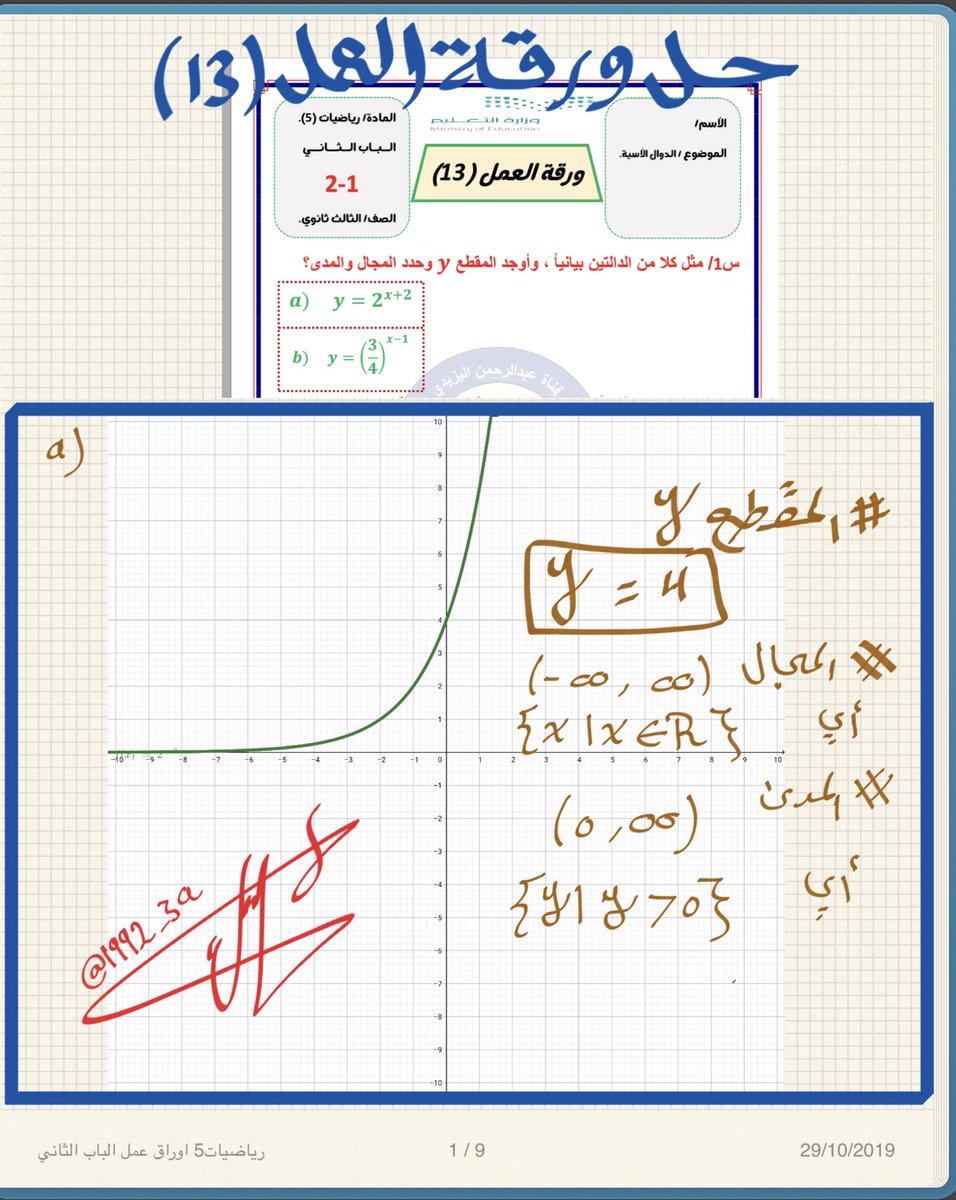 حل ورقة العمل (13)
الأسم/
الموضوع / الدوال الأسية.
وزارة التعليم
Ministry of Education
ورقة العمل (13)
المادة/ رياضيات (5).
الباب الثاني
2-1
الصف/ الثالث ثانوي.
س1/ مثل كلا من الدالتين بيانياً ، وأوجد المقطع y وحدد المجال والمدى؟
a) y = 2^{x+2}
b) y = (3/4)^{x-1}
قناة عبدالرحمن اليزيدي
a)
# المقطع y
y = 4
# المجال (-∞, ∞)
أي {x | x ∈ R}
# المدى
(0, ∞)
أي {y | y > 0}
10
9
8
7
6
5
4
3
2
1
-10 -9 -8 -7 -6 -5 -4 -3 -2 -1 0 1 2 3 4 5 6 7 8 9 10
-1
-2
-3
-4
-5
-6
-7
-8
-9
-10
@1992_3a
رياضيات5 اوراق عمل الباب الثاني
1 / 9
29/10/2019